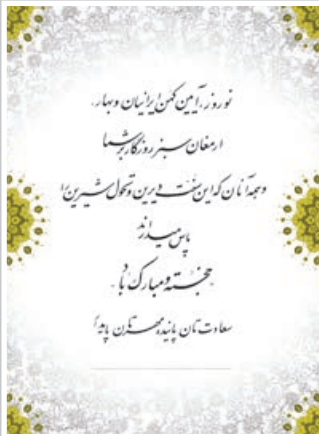 نوروز، آیین کهن ایرانیان و بهار،
ارمغان سبز روزگار بر شما
و همه آنان که این سنت دیرین و تحول شیرین را
پاس میدارند
خجسته و مبارک باد
سعادت تان پاینده مهرتان پایدار